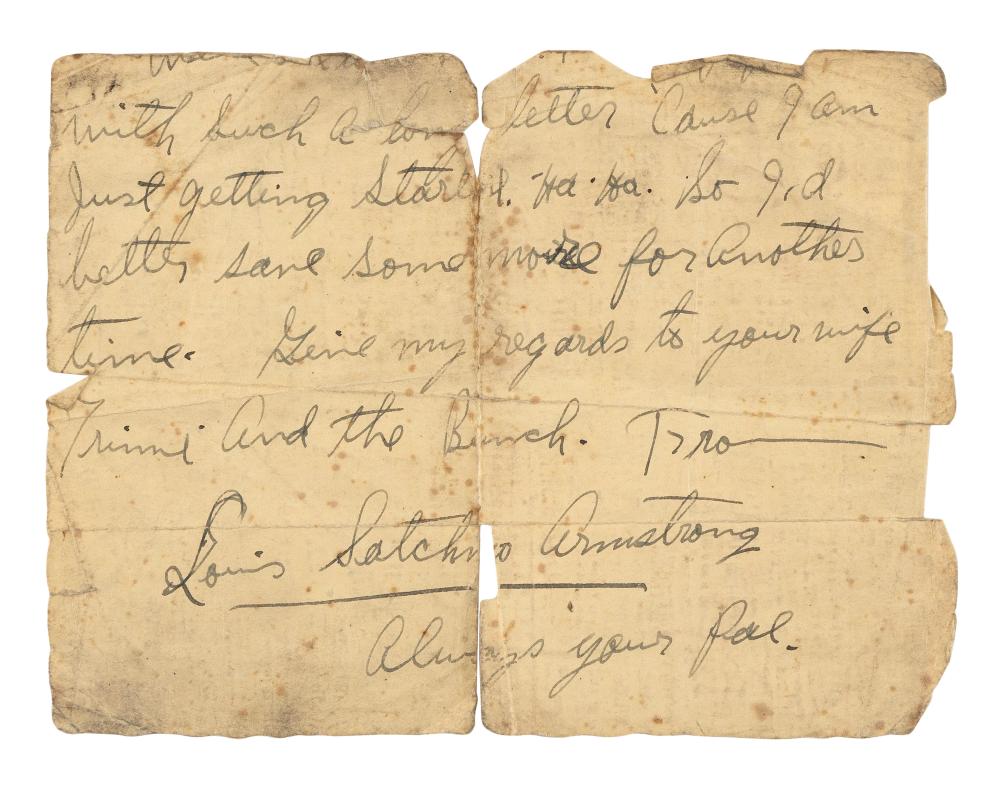 with such a long letter 'cause I am
Just getting Started. "Ha Ha. So I'd
better save some more for Another
time. Give my regards to your wife
And the Bunch. From
Louis Satchmo Armstrong
Always your Pal.